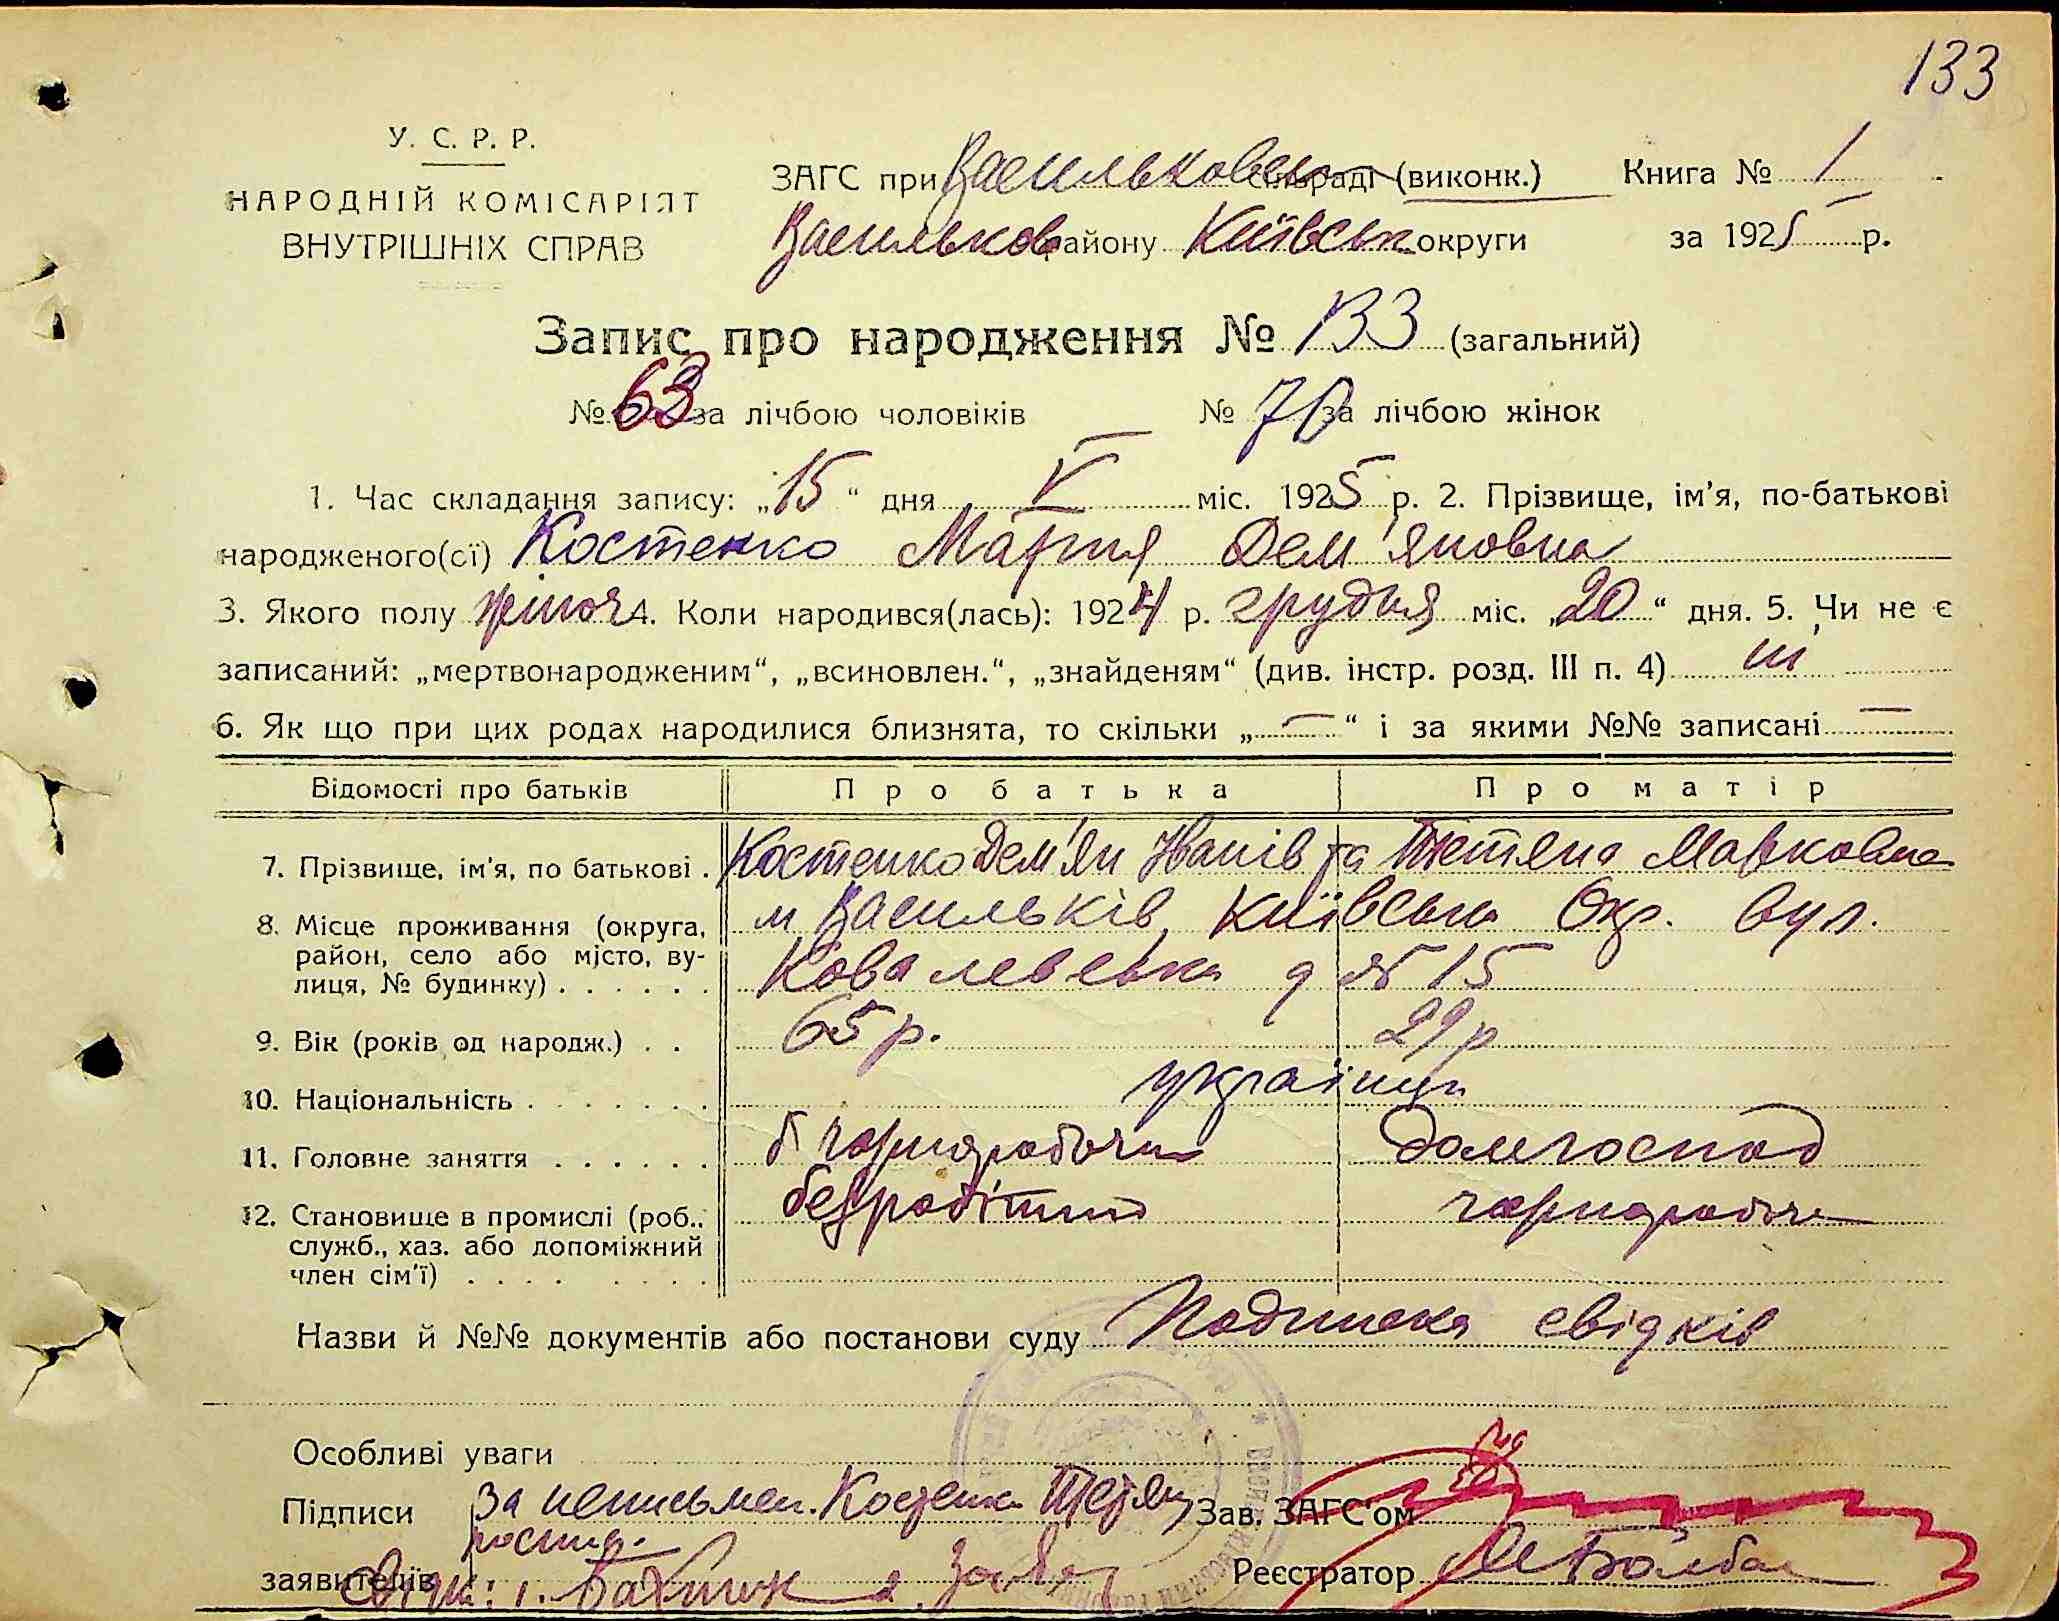 133
У. С. Р. Р.
НАРОДНІЙ КОМІСАРІЯТ
ВНУТРІШНІХ СПРАВ
ЗАГС при Васильковськ сільраді (виконк.) Книга № 1
Васильков району Київськ округи за 1925 р.
Запис про народження № 133 (загальний)
№ 63 за лічбою чоловіків № 70 за лічбою жінок
1. Час складання запису: „15“ дня V міс. 1925 р. 2. Прізвище, ім'я, по-батькові
народженого(сї) Костенко Мария Дем'яновна
3. Якого полу жіноч 4. Коли народився(лась): 1924 р. грудня міс. „20“ дня. 5. Чи не є
записаний: „мертвонародженим“, „всиновлен.“, „знайденям“ (див. інстр. розд. III п. 4) ні
6. Як що при цих родах народилися близнята, то скільки „—“ і за якими №№ записані —
Відомості про батьків Про батька Про матір
7. Прізвище, ім'я, по батькові . Костенко Дем'ян Іванів та Тетяна Марковна
8. Місце проживання (округа, м Васильків, Київська Окр. вул.
район, село або місто, ву-
лиця, № будинку) . . . . . . Ковалевська д № 15
9. Вік (років од народж.) . . 65 р. 29 р
10. Національність . . . . . . . українці
11. Головне заняття . . . . . . б чорноробочий домгоспод
12. Становище в промислі (роб., безробітний чорноробоч
служб., хаз. або допоміжний
член сім'ї) . . . . . . . .
Назви й №№ документів або постанови суду Подписка свідків
Особливі уваги
Підписи За неписьмен. Костенко Тетяну Зав. ЗАГС'ом
роспис.
заявителів Свідк: 1. Реєстратор